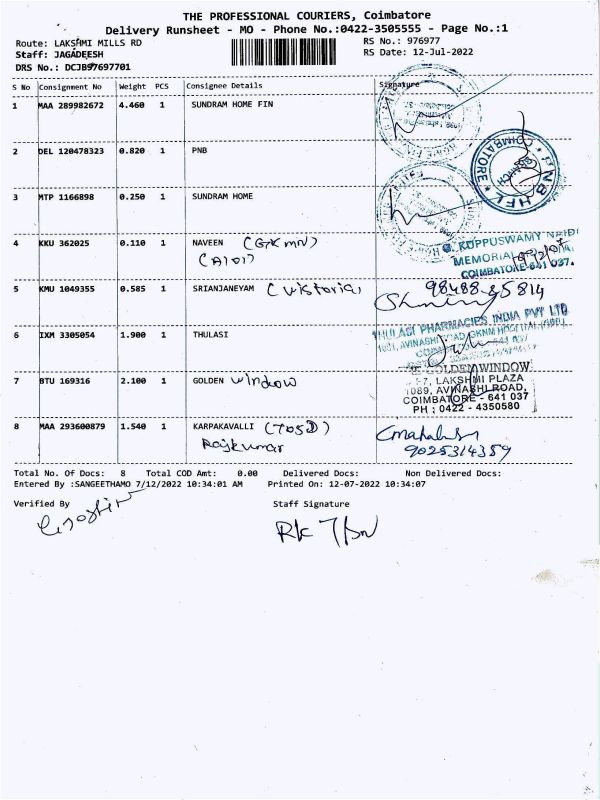 THE PROFESSIONAL COURIERS, Coimbatore
Delivery Runsheet - MO - Phone No.:0422-3505555 - Page No.:1
Route: LAKSHMI MILLS RD RS No.: 976977
Staff: JAGADEESH RS Date: 12-Jul-2022
DRS No.: DCJB97697701
S No Consignment No Weight PCS Consignee Details Signature
1 MAA 289982672 4.460 1 SUNDRAM HOME FIN
2 DEL 120478323 0.820 1 PNB
COIMBATORE BRANCH PNB HFL
3 MTP 1166898 0.250 1 SUNDRAM HOME
4 KKU 362025 0.110 1 NAVEEN (GKMN)
(A101)
G. KUPPUSWAMY NAIDU
MEMORIAL
COIMBATORE-641 037.
5 KMU 1049355 0.585 1 SRIANJANEYAM (Victoria)
98488 85814
6 IXM 3305054 1.900 1 THULASI
THULASI PHARMACIES INDIA PVT LTD
1081, AVINASHI ROAD, GKNM HOSPITAL
7 BTU 169316 2.100 1 GOLDEN window
GOLDEN WINDOW
LAKSHMI PLAZA
1089, AVINASHI ROAD,
COIMBATORE - 641 037
PH : 0422 - 4350580
8 MAA 293600879 1.540 1 KARPAKAVALLI (705D)
Rajkumar
9025314359
Total No. Of Docs: 8 Total COD Amt: 0.00 Delivered Docs: Non Delivered Docs:
Entered By :SANGEETHAMO 7/12/2022 10:34:01 AM Printed On: 12-07-2022 10:34:07
Verified By Staff Signature